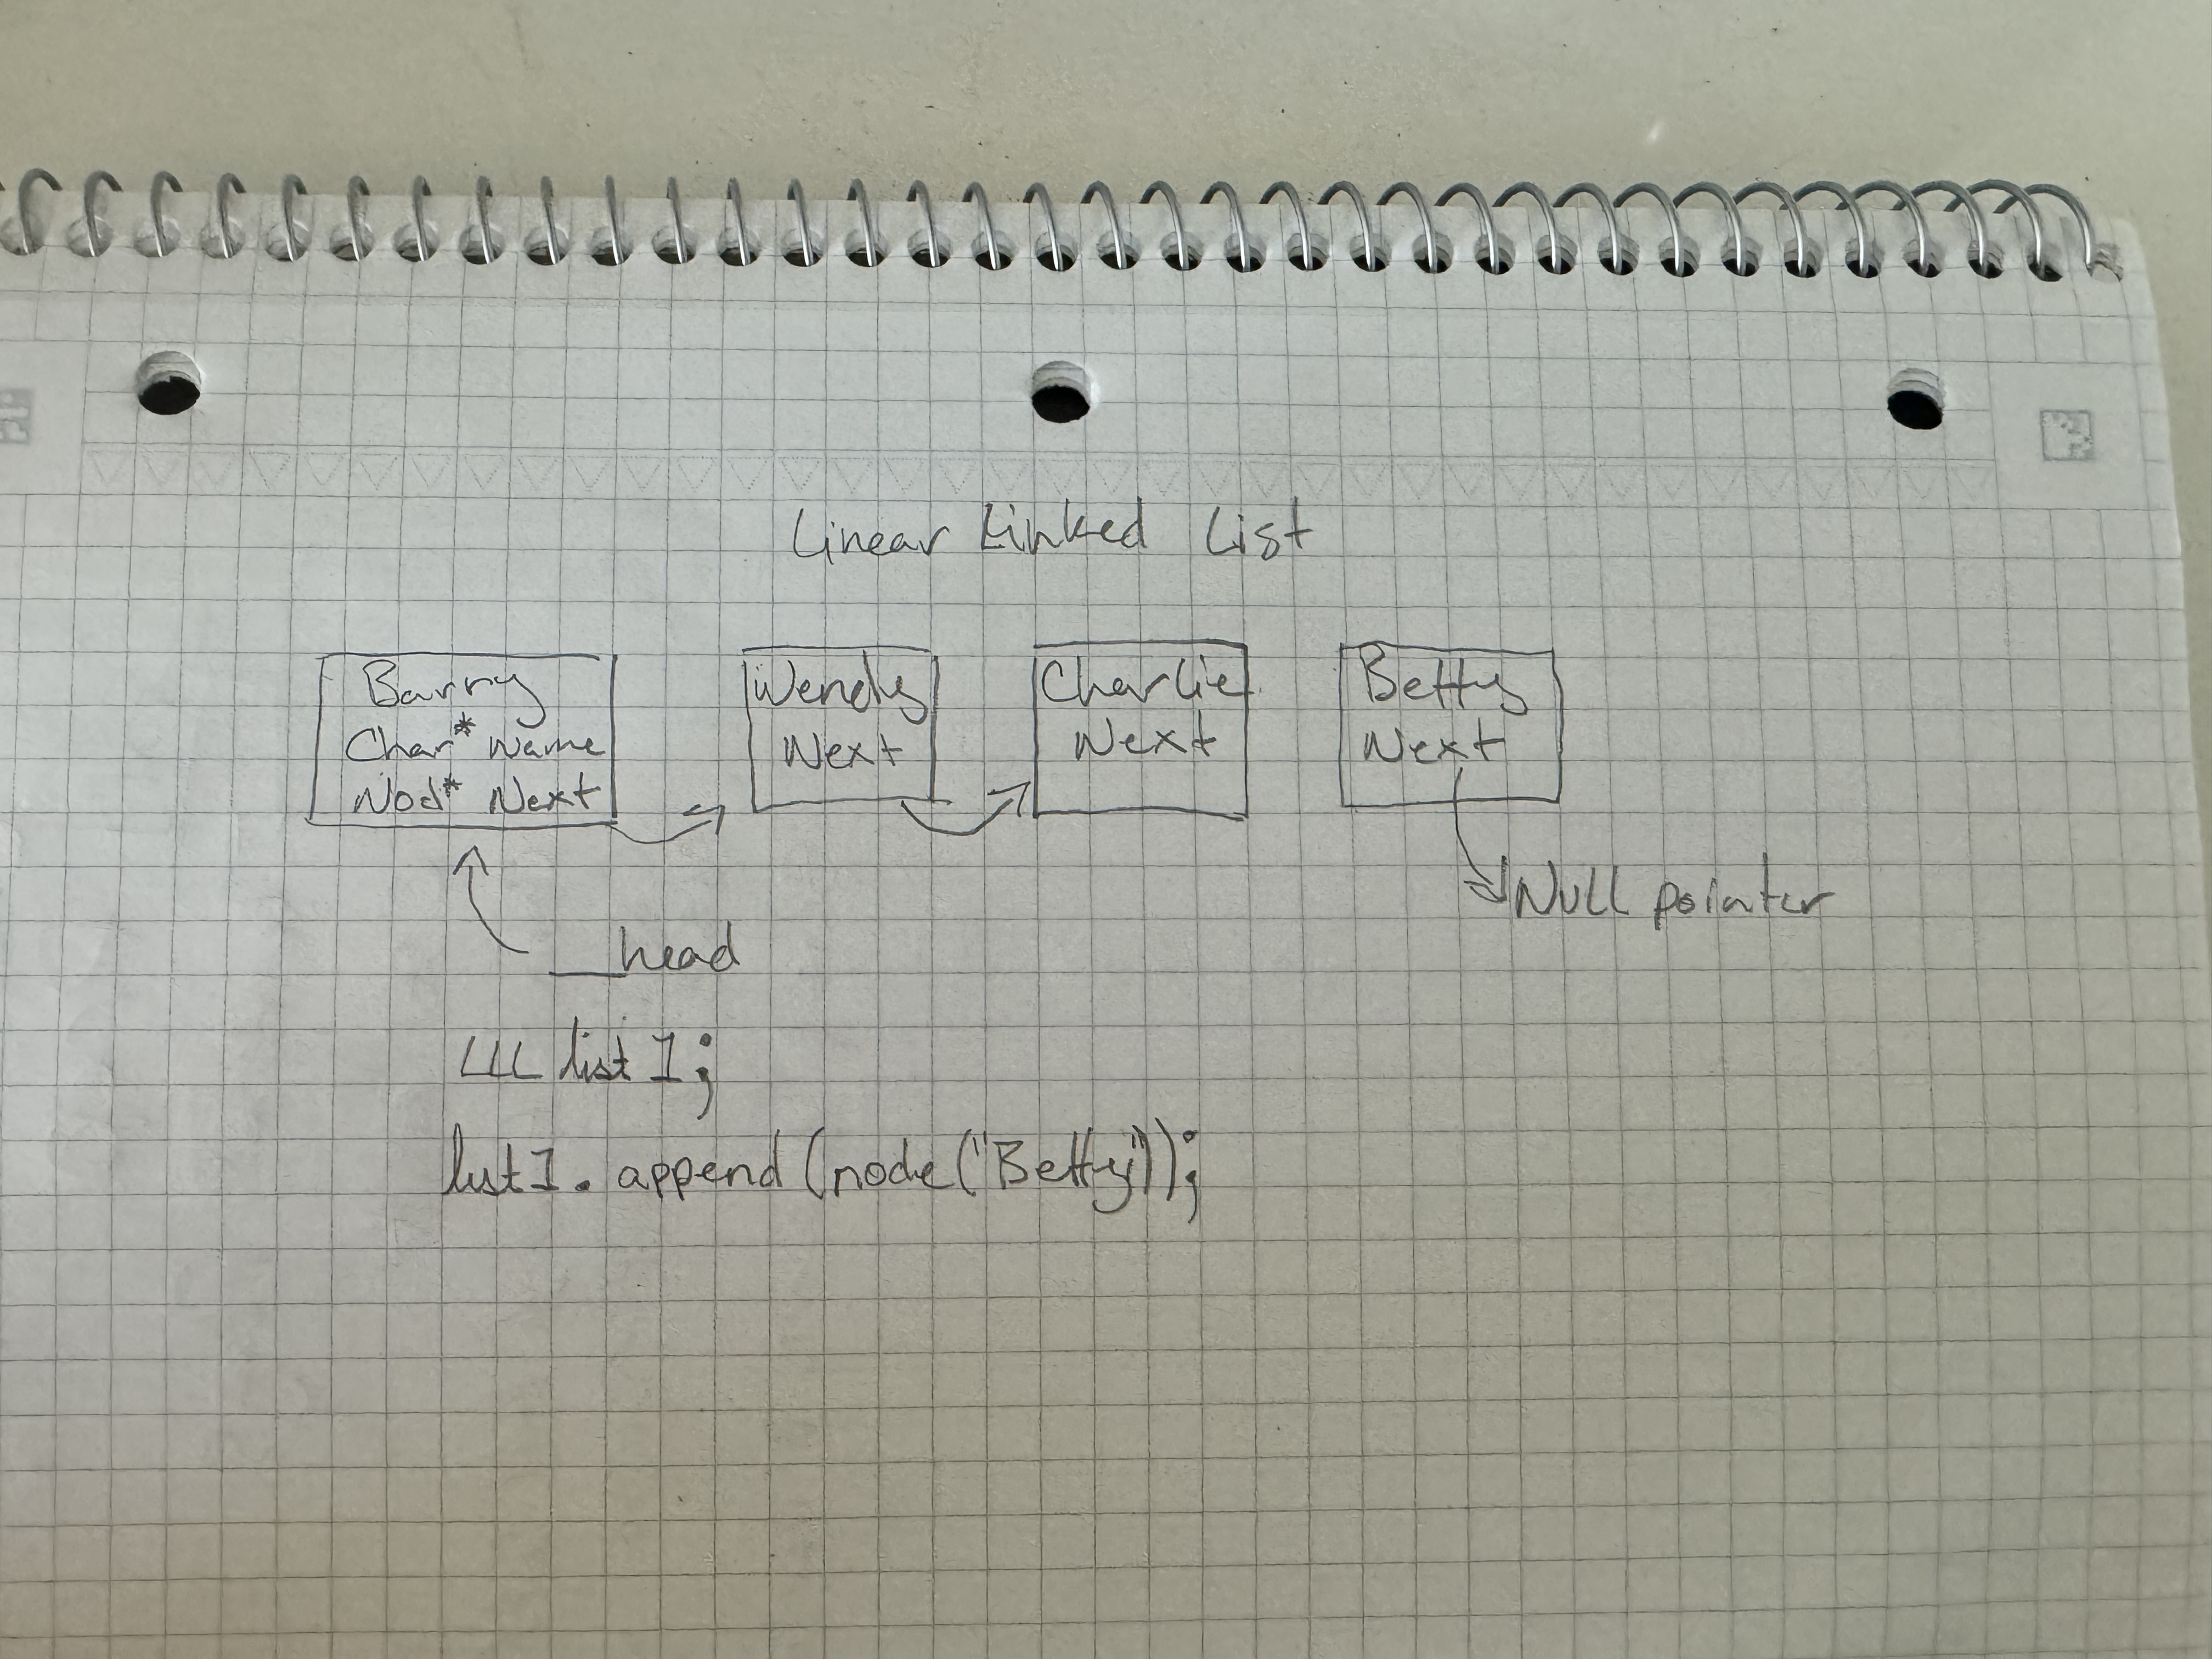 Linear Linked List
Barry
Char* Name
Nod* Next
Wendy
Next
Charlie
Next
Betty
Next
Null pointer
head
LLL list1;
list1.append(node("Betty"));